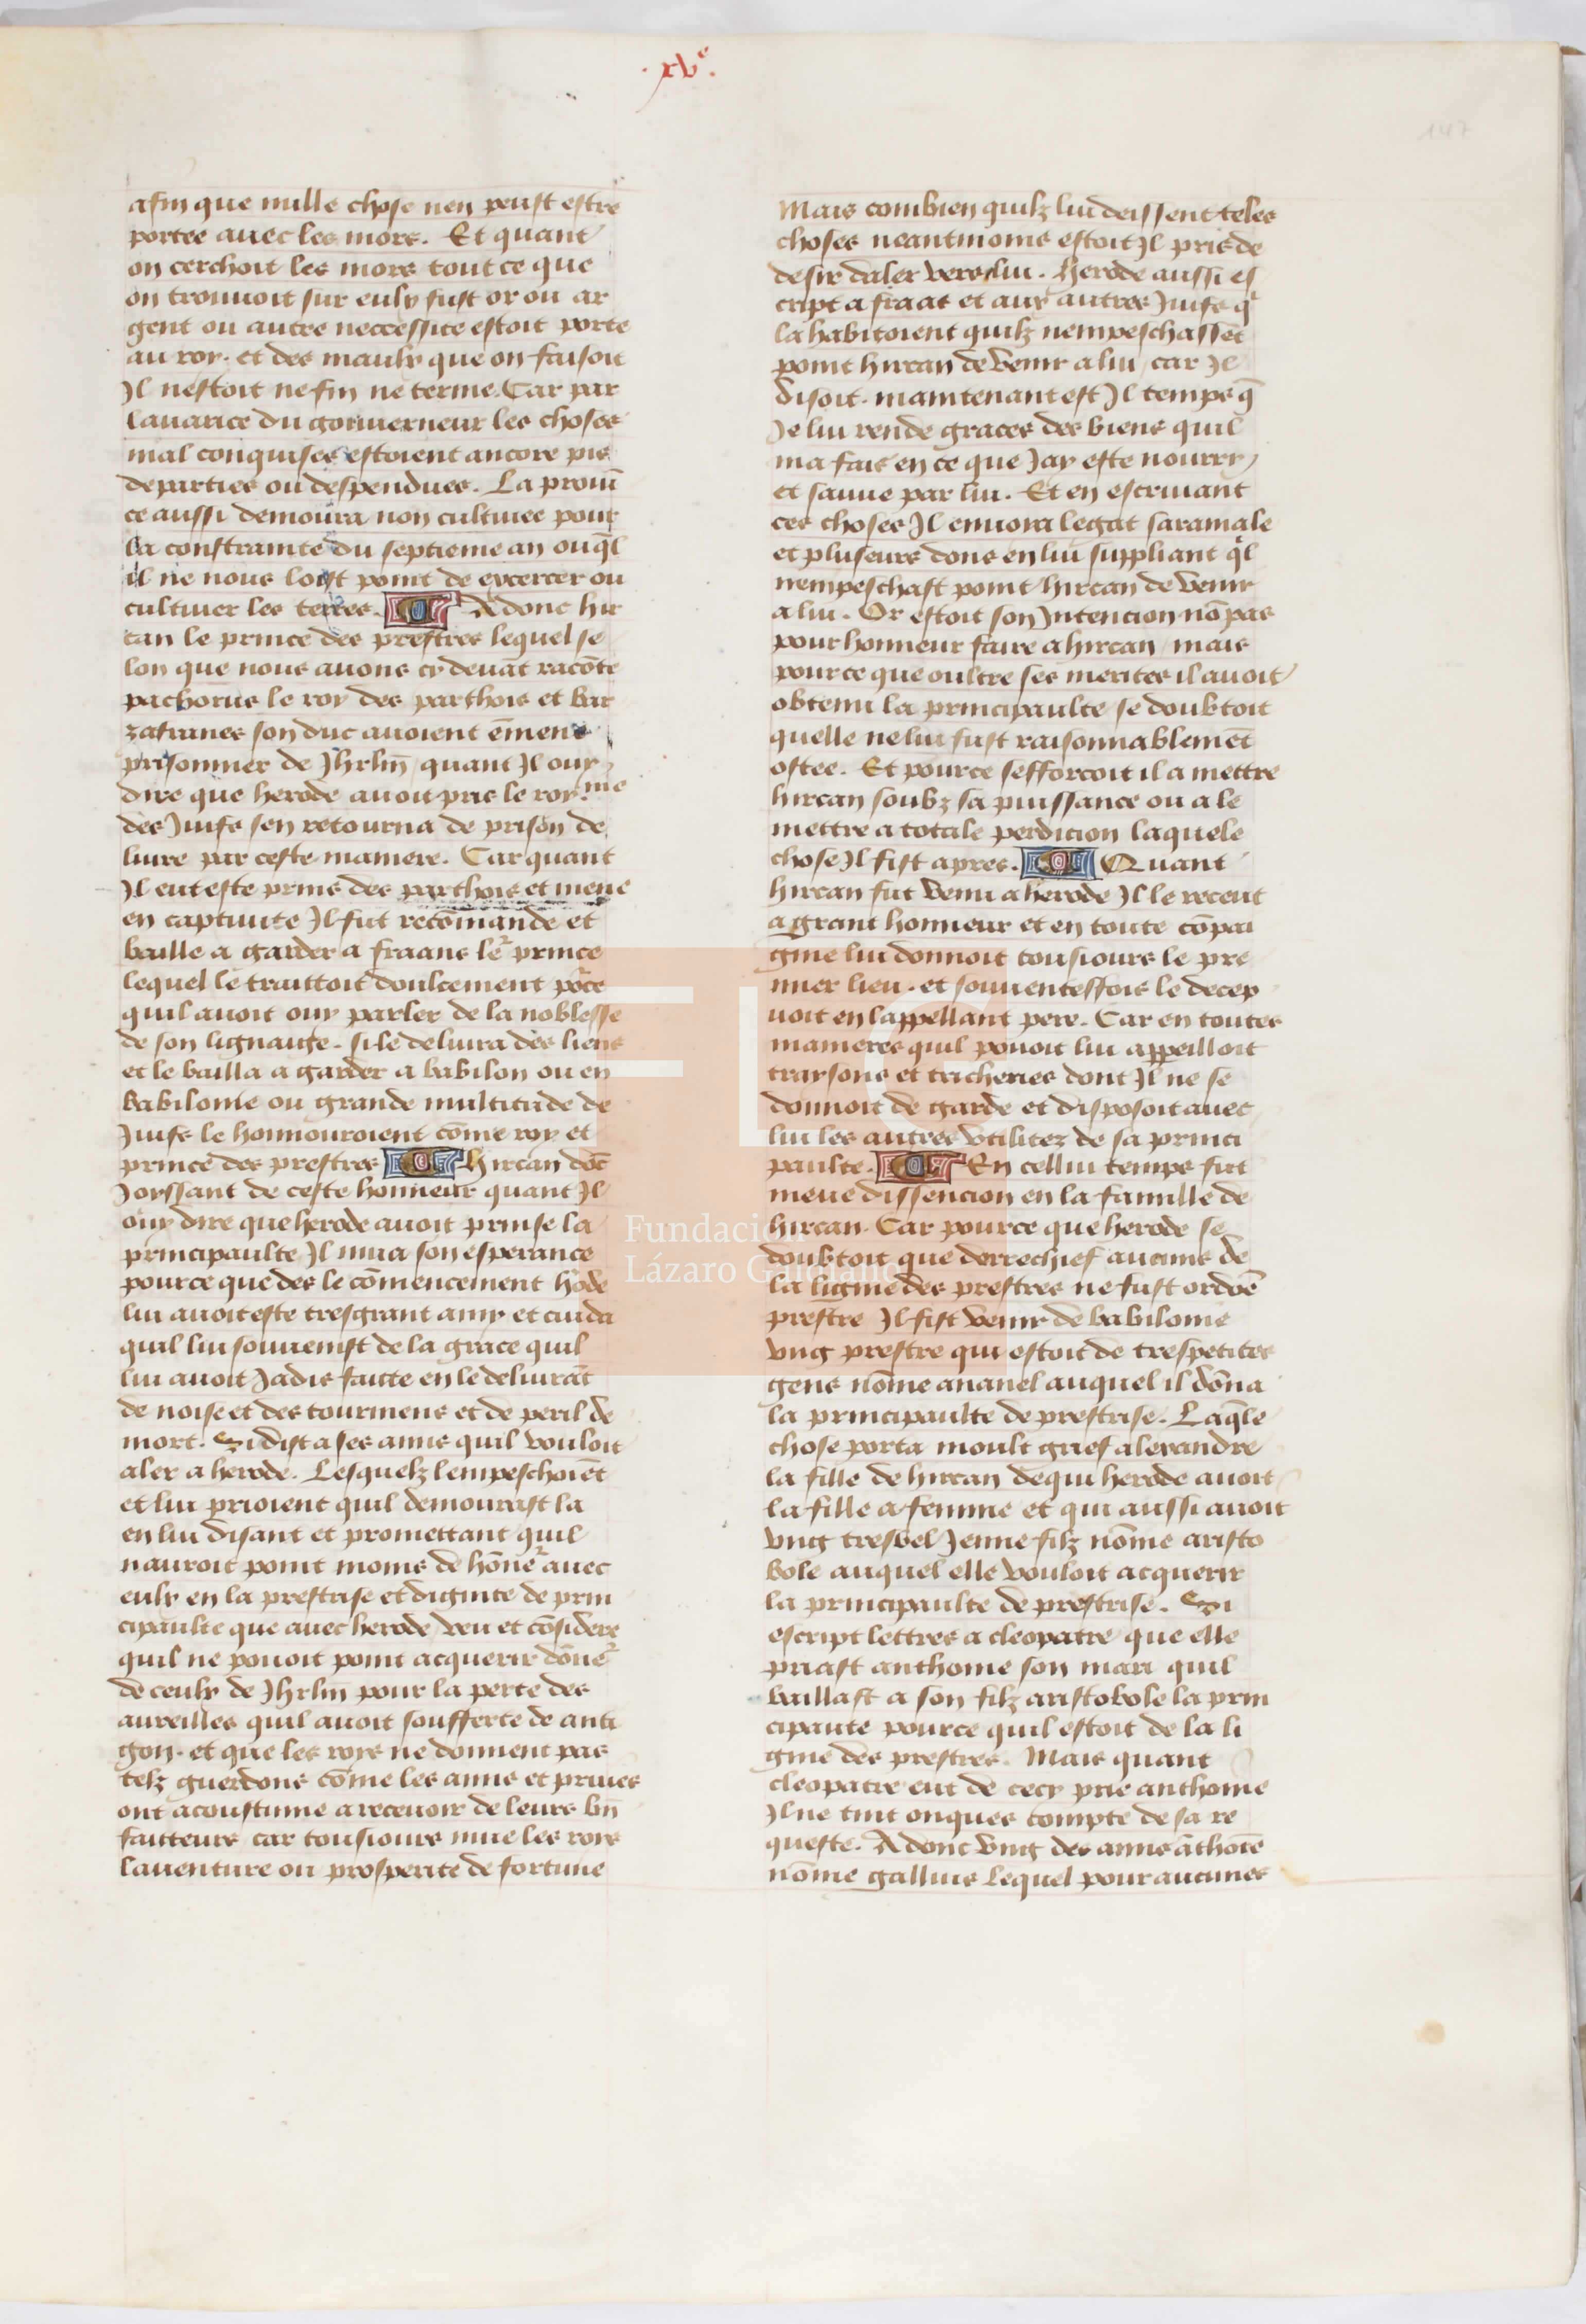 .xve.
147
afin que nulle chose nen peust estre
portee auec les mors. Et quant
on cerchoit les mors tout ce que
on trouuoit sur eulx fust or ou ar
gent ou autre neccessite estoit porte
au roy. et des maulx que on faisoit
Il nestoit ne fin ne terme. Car par
lauarice du gouuerneur les choses
mal conquises estoient ancore pis
departies ou despendues. La prouī
ce aussi demoura non cultiuee pour
la constrainte du septieme an ouq̄l
il ne nous loist point de excercer ou
cultiuer les terres. Adonc hir
can le prince des prestres lequel se
lon que nous auons cy deuāt racōte
pachorus le roy des parthois et bar
zafranes son duc auoient ēmene
prisonnier de Jhrlm̄ quant Il ouy
dire que herode auoit pris le royme
des Juifs sen retourna de prison de
liure par ceste maniere. Car quant
Il eut este prins des parthois et mene
en captiuite Il fut recōmande et
baille a garder a fraans le prince
lequel le traittoit doulcement pōce
quil auoit ouy parler de la noblesse
de son lignaige. si le deliura des liens
et le bailla a garder a babilon ou en
babilonie ou grande multitude de
Juifs le honnouroient cōme roy et
prince des prestres Hircan dōc
Joyssant de ceste honneur quant Il
ouy dire que herode auoit prinse la
principaulte Il mua son esperance
pource que des le cōmencement h̄ode
lui auoit este tresgrant amy et cuida
quil lui souuenist de la grace quil
lui auoit Jadis faicte en le deliurāt
de noise et des tourmens et de peril de
mort. Si dist a ses amis quil vouloit
aler a herode. Lesquelz lempeschoiēt
et lui prioient quil demourast la
en lui disant et promettant quil
nauroit point moins de hōne' auec
eulx en la prestrise et dignite de prin
cipaulte que auec herode veu et cōsidere
quil ne pouoit point acquerir dōne'
de ceulx de Jhrlm̄ pour la perte des
aureilles quil auoit soufferte de anti
gon. et que les roys ne donnent pas
telz guerdons cōme les amis et priues
ont acoustume a receuoir de leurs bn̄
faitteurs car tousiours mue les roys
lauenture ou prosperite de fortune
Mais combien quilz lui deissent teles
choses neantmoins estoit Il pris de
desir daler vers lui. Herode aussi es
cript a fraat et aux autres Juifs q̄
la habitoient quilz nempeschassēt
point hircan de venir a lui car Il
disoit. maintenant est Il temps q̄
Je lui rende graces des biens quil
ma fais en ce que Jay este nourry
et sauue par lui. Et en escriuant
ces choses Il enuoia legat saramale
et pluseurs dons en lui suppliant q̄l
nempeschast point hircan de venir
a lui. Or estoit son Intencion nō pas
pour honneur faire a hircan mais
pource que oultre ses merites il auoit
obtenu la principaulte se doubtoit
quelle ne lui fust raisonnablemēt
ostee. Et pource sefforcoit il a mettre
hircan soubz sa puissance ou a le
mettre a totale perdicion laquele
chose Il fist apres. Quant
hircan fut venu a herode Il le receut
a grant honneur et en toute cōpai
gnie lui donnoit tousiours le pre
mier lieu. et souuenteffois le decep
uoit en lappellant pere. Car en toutes
manieres quil pouoit lui appeilloit
traysons et tricheries dont Il ne se
donnoit de garde et disposoit auec
lui les autres vtilitez de sa princi
paulte. En cellui temps fut
meue dissencion en la famille de
hircan. Car pource que herode se
doubtoit que derrechief aucuns de
la lignie des prestres ne fust ordōē
prestre Il fist venir de babilonie
vng prestre qui estoit de trespetites
gens nōme ananel auquel il dōna
la principaulte de prestrise. Laq̄le
chose porta moult grief alexandre
la fille de hircan de qui herode auoit
la fille a femme et qui aussi auoit
vng tresbel Jenne filz nōme aristo
bole auquel elle vouloit acquerir
la principaulte de prestrise. Si
escript lettres a cleopatre que elle
priast anthoine son mari quil
baillast a son filz aristobole la prin
cipaute pource quil estoit de la li
gnie des prestres. Mais quant
cleopatre eut de cecy prie anthoine
Il ne tint onques compte de sa re
queste. Adonc vng des amis āthoīe
nōme gallius lequel pour aucunes
Fundación
Lázaro Galdiano
FLG